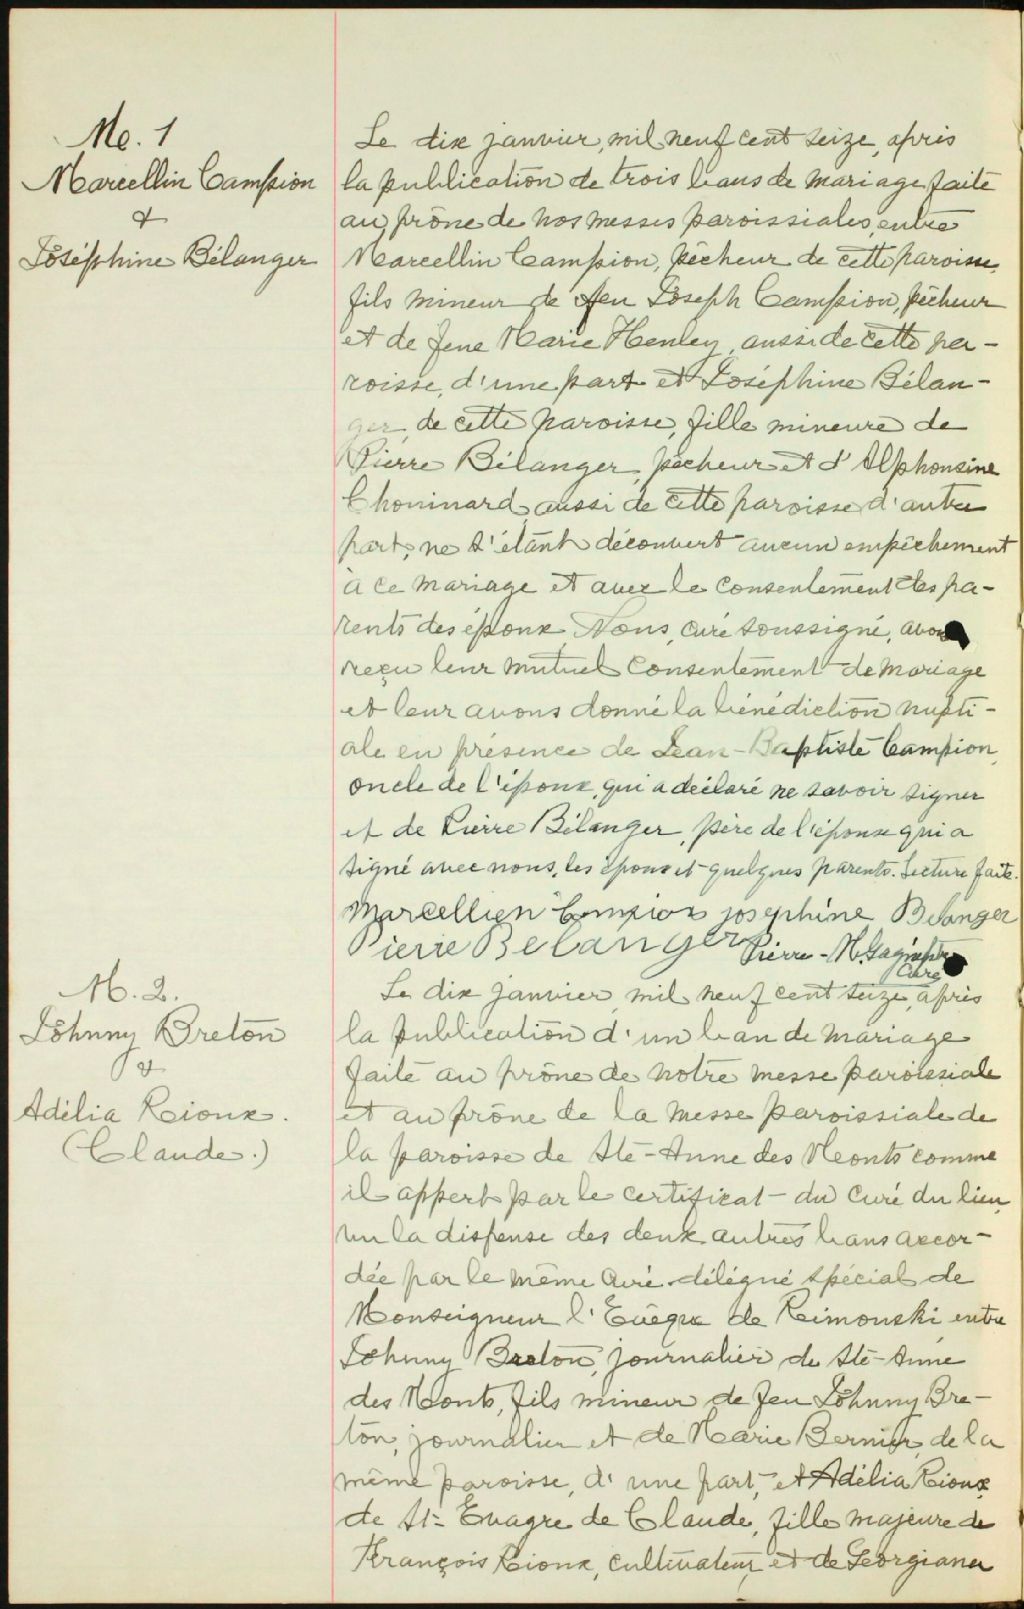 M. 1
Marcellin Campion
&
Joséphine Bélanger
Le dix janvier, mil neuf cent seize, après
la publication de trois bans de mariage faite
au prône de nos messes paroissiales, entre
Marcellin Campion, pêcheur de cette paroisse,
fils mineur de feu Joseph Campion, pêcheur
et de feue Marie Henley, aussi de cette pa-
roisse, d'une part et Joséphine Bélan-
ger, de cette paroisse, fille mineure de
Pierre Bélanger, pêcheur et d'Alphonsine
Chouinard, aussi de cette paroisse d'autre
part; ne s'étant découvert aucun empêchement
à ce mariage et avec le consentement des pa-
rents des époux, Nous, curé soussigné, avons
reçu leur mutuel consentement de mariage
et leur avons donné la bénédiction nupti-
ale en présence de Jean-Baptiste Campion,
oncle de l'époux, qui a déclaré ne savoir signer
et de Pierre Bélanger, père de l'épouse qui a
signé avec nous, les époux et quelques parents. Lecture faite.
Marcellien Campion josephine Belanger
Pierre Belanger Pierre-M. Gagné ptre
Curé
M. 2.
Johnny Breton
&
Adélia Rioux.
(Claude.)
Le dix janvier, mil neuf cent seize, après
la publication d'un ban de mariage
faite au prône de notre messe paroissiale
et au prône de la messe paroissiale de
la paroisse de Ste-Anne des Monts comme
il appert par le certificat du Curé du lieu,
vu la dispense des deux autres bans accor-
dée par le même Curé délégué spécial de
Monseigneur l'Evêque de Rimouski, entre
Johnny Breton, journalier de Ste-Anne
des Monts, fils mineur de feu Johnny Bre-
ton, journalier et de Marie Bernier, de la
même paroisse, d'une part, et Adélia Rioux,
de St-Evagre de Claude, fille majeure de
François Rioux, cultivateur, et de Georgiana